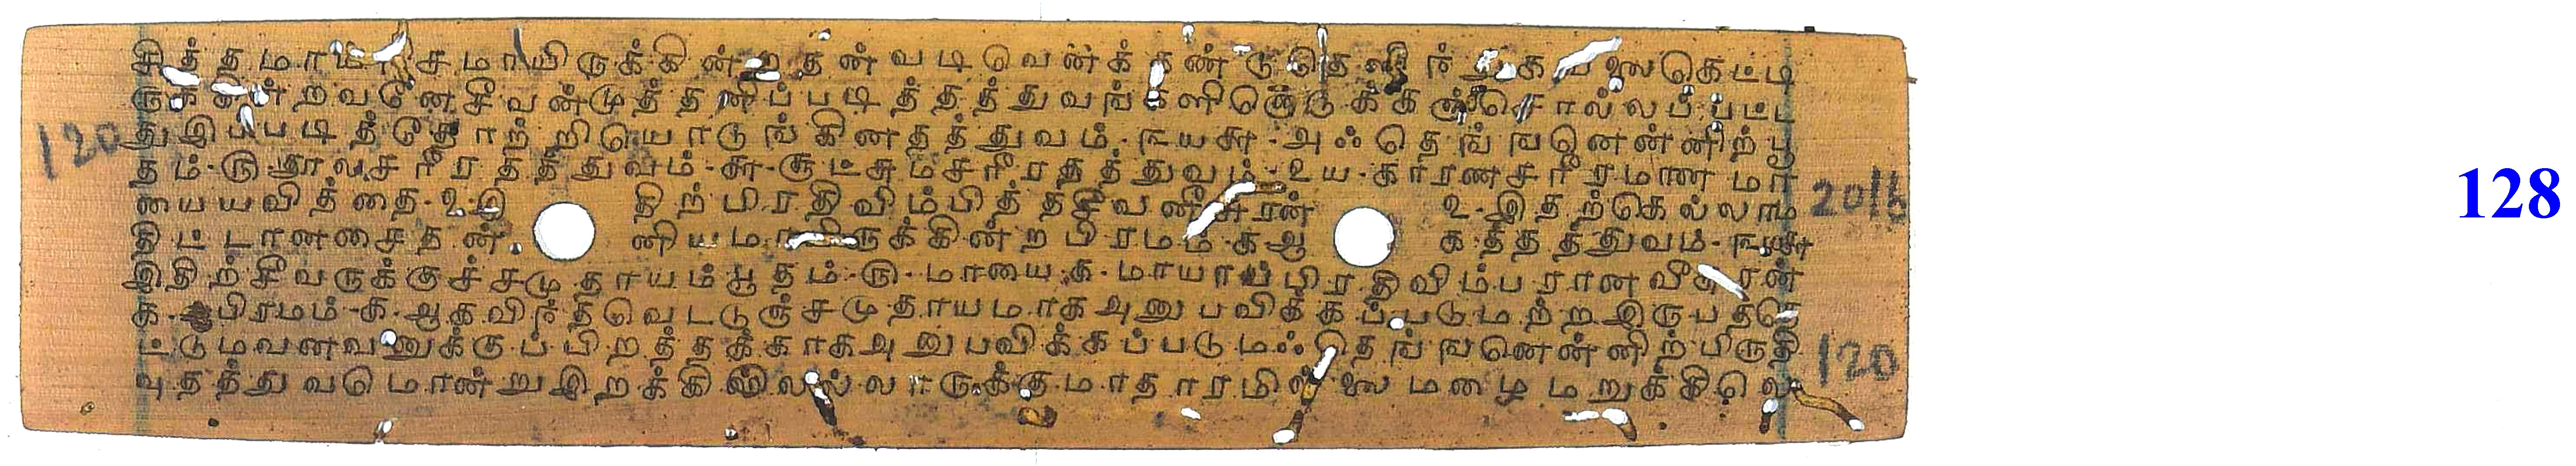 சமாயிருக்கின்ற தன் வடிவெனக் கண்டு
சீவன்முத்தனிப்படித்தத்துவங்களினெடுக்கஞ்சொல்லப்பட்ட
துஇப்படித்தோற்றியொடுங்கினதத்துவம்-௩௰௬-அஃதெங்ஙனென்னிற்பூ
தம்-௫-தூலசரீரதத்துவம்-௬-சூட்சுமசரீரதத்துவம்-௨௰-காரணசரீரமானமா
யையவித்தை-௨-இ திற்பிரதிவிம்பித்தசீவனீசுரன் ௨-இதற்கெல்லாம
திட்டானசைதன் னியமாயிருக்கின்றபிரமம்-க-ஆ கத்தத்துவம்-௩௰௬
இதிற்சீவருக்குச்சமுதாயம்பூதம்-௫-மாயை-க-மாயாப்பிரதிவிம்பரானவீசுரன்
க-பிரமம்-க-ஆகவிந்தவெட்டுஞ்சமுதாயமாகஅனுபவிக்கப்படுமற்றஇருபதெ
ட்டுமவனவனுக்குப்பிறத்தக்காகஅனுபவிக்கப்படுமஃதெங்ஙனென்னிற்பிருதி
வுதத்துவமொன்றுஇறக்கிலெல்லாருக்குமாதாரமில்லைமழைமறுக்கிலெ
120
2018
120
128